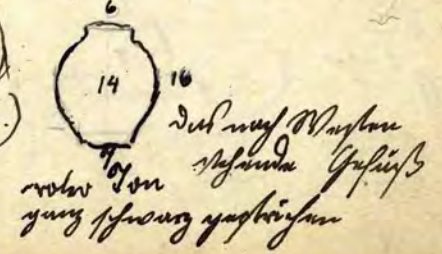 6
14 16
das nach Westen
stehende Gefäß
roter Ton
ganz schwarz gestrichen